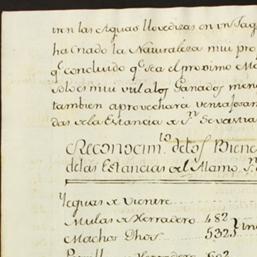 tren las Aguas llovedizas en un Jag
ha criado la Naturaleza mui pro
q.e concluido q.e sea el proximo Me
solo es mui util a los Ganados men
tambien aprovechará ventajosam
das de la Estancia de S.n Sevastia
Reconocim.to de los Biene
de las Estancias del Alamo, S.n
Yeguas de Vientre
Mulas de Herradero 482
Machos Dhos. 532